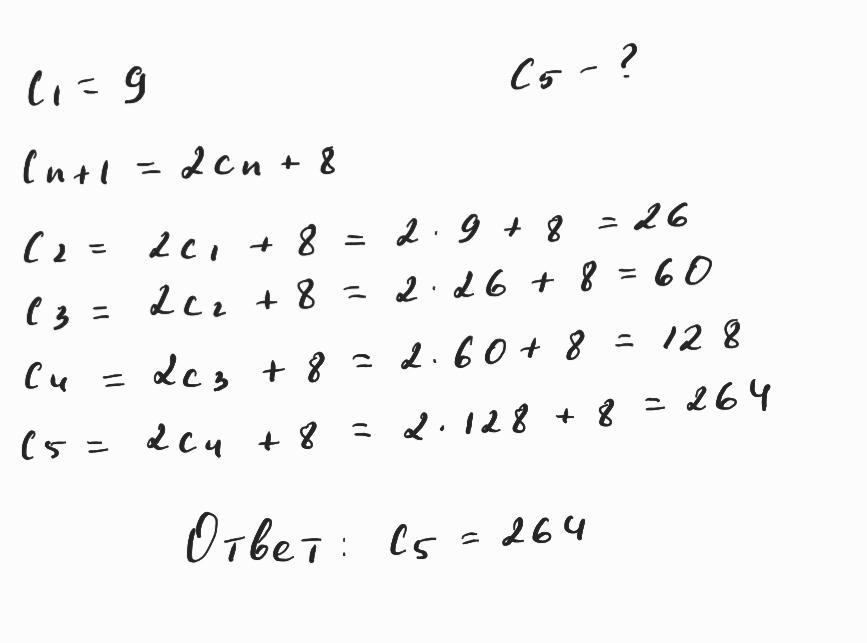 C₁ = 9 C₅ - ?
Cₙ₊₁ = 2cₙ + 8
C₂ = 2c₁ + 8 = 2 · 9 + 8 = 26
C₃ = 2c₂ + 8 = 2 · 26 + 8 = 60
C₄ = 2c₃ + 8 = 2 · 60 + 8 = 128
C₅ = 2c₄ + 8 = 2 · 128 + 8 = 264
Ответ: C₅ = 264